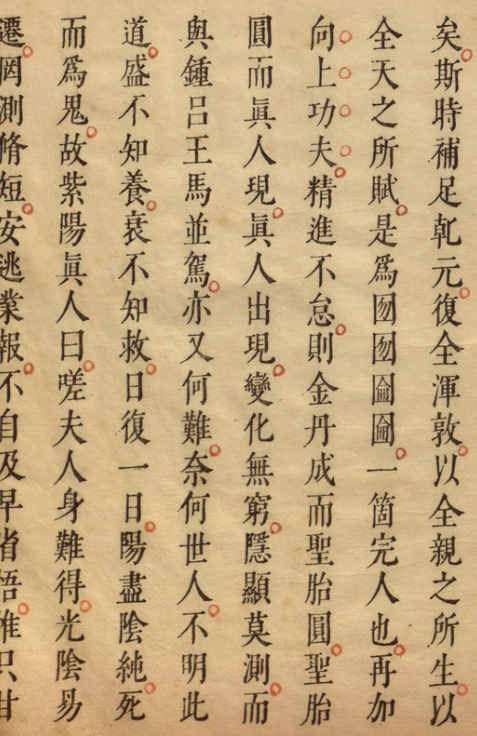 矣斯時補足乾元復全渾敦以全親之所生以
全天之所賦是爲囫囫圇圇一箇完人也再加
向上功夫精進不怠則金丹成而聖胎圓聖胎
圓而眞人現眞人出現變化無窮隱顯莫測而
與鍾呂王馬並駕亦又何難奈何世人不明此
道盛不知養衰不知救日復一日陽盡陰純死
而爲鬼故紫陽眞人曰嗟夫人身難得光陰易
遷罔測脩短安逃業報不自及早省悟惟只甘